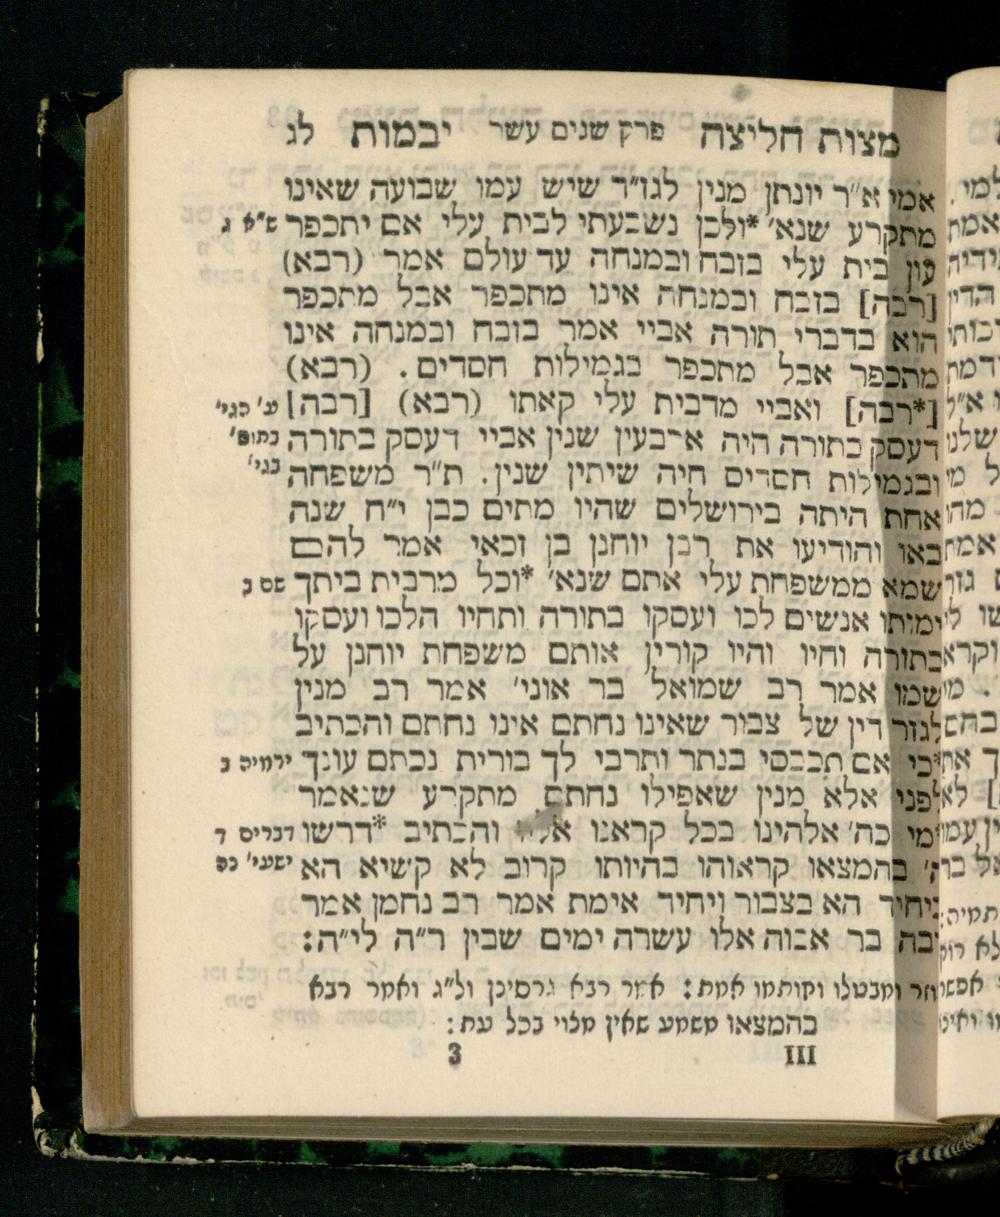 מצות חליצה פרק שנים עשר יבמות לג
אמי א״ר יונתן מנין לגז״ד שיש עמו שבועה שאינו
מתקרע שנא׳ *ולכן נשבעתי לבית עלי אם יתכפר ש״א ג
עון בית עלי בזבח ובמנחה עד עולם אמר (רבא)
[רבה] בזבח ובמנחה אינו מתכפר אבל מתכפר
הוא בדברי תורה אביי אמר בזבח ובמנחה אינו
מתכפר אבל מתכפר בגמילות חסדים. (רבא)
[*רבה] ואביי מדבית עלי קאתו (רבא) [רבה] ע׳ בגי׳
דעסק בתורה חיה ארבעין שנין אביי דעסק בתורה בתוס׳
ובגמילות חסדים חיה שיתין שנין. ת״ר משפחה בגי׳
אחת היתה בירושלים שהיו מתים כבן י״ח שנה
באו והודיעו את רבן יוחנן בן זכאי אמר להם
שמא ממשפחת עלי אתם שנא׳ *וכל מרבית ביתך שם ב
ימותו אנשים לכו ועסקו בתורה ותחיו הלכו ועסקו
בתורה וחיו והיו קורין אותם משפחת יוחנן על
שמו אמר רב שמואל בר אוני׳ אמר רב מנין
לגזר דין של צבור שאינו נחתם אינו נחתם והכתיב
כי אם תכבסי בנתר ותרבי לך בורית נכתם עונך ירמיה ב
לפני אלא מנין שאפילו נחתם מתקרע שנאמר
מי כה׳ אלהינו בכל קראנו אליו והכתיב *דרשו דברים ד
ה׳ בהמצאו קראוהו בהיותו קרוב לא קשיא הא ישעי׳ נה
ביחיד הא בצבור ויחיד אימת אמר רב נחמן אמר
רבה בר אבוה אלו עשרה ימים שבין ר״ה לי״ה:
ומבטלו וקותמו אמת: אמר רבא גרסינן ול״ג ואמר רבא
בהמצאו משמע שאין מלוי בכל עת:
III 3